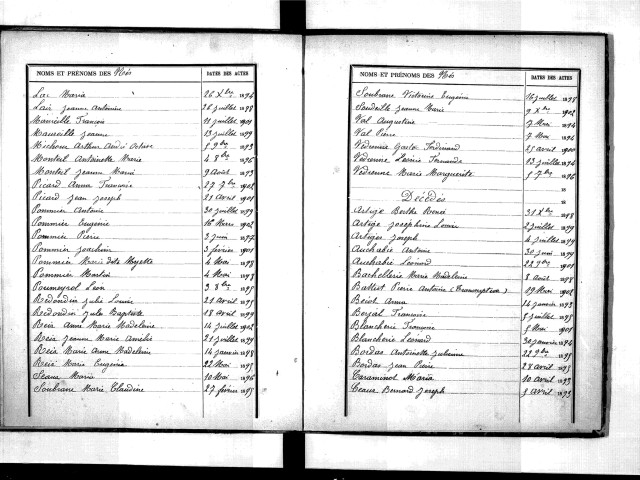 NOMS ET PRÉNOMS DES Nés DATES DES ACTES
Lac Maria 26 Xbre 1894
Lair Jeanne Antoinine 26 juillet 1898
Marseille François 11 juillet 1901
Marseille Jeanne 13 juillet 1899
Michon Arthur André Octave 5 9bre 1893
Monteil Antoinette Marie 4 8bre 1896
Monteil Jeanne Marie 9 Août 1893
Picard Anna Françoise 27 7bre 1902
Picard Jean Joseph 21 avril 1901
Pommier Antoine 30 juillet 1899
Pommier Eugénie 16 Mars 1902
Pommier Pierre 3 juin 1897
Pommier Joachim 3 février 1901
Pommier Marie dite Mayette 4 Mai 1898
Pommier Martin 4 Mai 1893
Poumeyrol Léon 3 8bre 1895
Redondin Julie Louise 21 avril 1895
Redondin Jules Baptiste 18 avril 1899
Reix Anne Marie Madeleine 14 juillet 1902
Reix Jeanne Marie Amélie 21 juillet 1899
Reix Marie Anne Madeleine 14 janvier 1898
Reix Marie Eugénie 22 Mai 1895
Seaux Marie 10 Mai 1896
Soubrane Marie Claudine 27 février 1895
NOMS ET PRÉNOMS DES Nés DATES DES ACTES
Soubrane Victorine Eugénie 16 juillet 1898
Soudeille Jeanne Marie 9 Xbre 1902
Val Augustine 7 Mai 1894
Val Pierre 7 Mai 1894
Védrenne Gaston Ferdinand 25 avril 1900
Védrenne Lucien Fernande 23 juillet 1894
Védrenne Marie Marguerite 5 7bre 1896
Décédés
Artige Berthe Renée 31 Xbre 1898
Artige Joséphine Louise 2 juillet 1899
Artiges Joseph 4 juillet 1899
Auchabie Antoine 30 juin 1899
Auchabie Léonard 22 9bre 1901
Bachellerie Marie Madeleine 8 Août 1898
Ballet Pierre Antoine (Transcription) 29 Mai 1902
Beiot Anna 14 janvier 1893
Berjal Françoise 5 juillet 1898
Blancherie Françoise 8 Mai 1901
Blancherie Léonard 30 janvier 1894
Bordas Antoinette Julienne 22 9bre 1898
Bordas Jean Pierre 28 avril 1895
Caraminot Maria 10 avril 1893
Ceaux Bernard Joseph 8 avril 1893